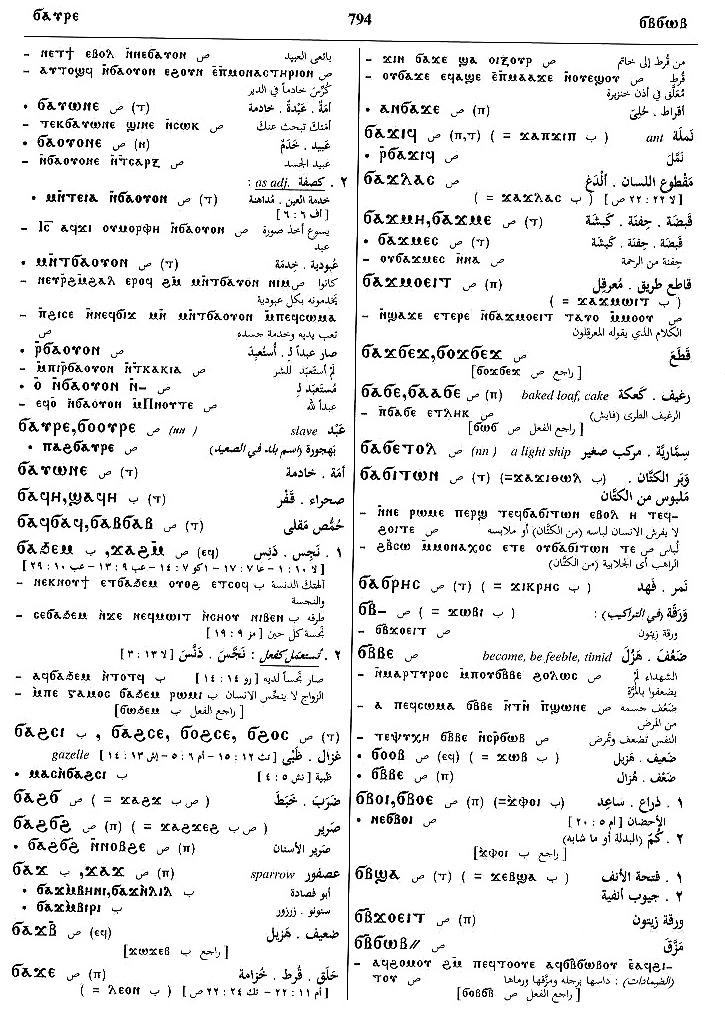 ϭⲁⲩⲣⲉ 794 ϭⲃϭⲱⲃ
– ⲛⲉⲧϯ ⲉⲃⲟⲗ ⲛ̀ⲛⲉϭⲁⲩⲟⲛ ص بائعى العبيد
– ⲁⲩⲧⲟϣϥ ⲛ̀ϭⲁⲟⲩⲟⲛ ⲉϩⲟⲩⲛ ⲉ̀ⲡⲙⲟⲛⲁⲥⲧⲏⲣⲓⲟⲛ ص
كُرِّسَ خادماً فى الدير
• ϭⲁⲩⲱⲛⲉ ص (ⲧ) أمَة . عَبْدَة . خادمة
– ⲧⲉⲕϭⲁⲩⲱⲛⲉ ϣⲓⲛⲉ ⲛ̀ⲥⲱⲕ ص أمتك تبحث عنك
• ϭⲁⲟⲩⲟⲛⲉ ص (ⲛ) عَبيد . خَدَمٌ
– ⲛ̀ϭⲁⲟⲩⲟⲛⲉ ⲛ̀ⲧⲥⲁⲣⲝ ص عبيد الجسد
٢ . كصفة as adj. :
• ⲙⲛ̄ⲧⲉⲓⲁ ⲛ̀ϭⲁⲟⲩⲟⲛ ص (ⲧ) خدمة العين . مُداهنة
[ أف ٦ : ٦ ]
– ⲓ̅ⲥ̅ ⲁϥϫⲓ ⲟⲩⲙⲟⲣⲫⲏ ⲛ̀ϭⲁⲟⲩⲟⲛ ص يسوع أخذ صورة
عبد
• ⲙⲛ̄ⲧϭⲁⲟⲩⲟⲛ ص (ⲧ) عُبودية . خِدْمَة
– ⲛⲉⲩⲣ̄ϩⲙ̄ϩⲁⲗ ⲉⲣⲟϥ ϩⲛ̄ ⲙⲛ̄ⲧϭⲁⲩⲟⲛ ⲛⲓⲙ ص كانوا
يخدمونه بكل عبودية
– ⲡϩⲓⲥⲉ ⲛ̀ⲛⲉϥϭⲓϫ ⲙⲛ ⲙⲛ̄ⲧϭⲁⲩⲟⲛ ⲙ̀ⲡⲉϥⲥⲱⲙⲁ
ص تعب يديه وخدمة جسده
• ⲣ̄ϭⲁⲟⲩⲟⲛ ص صار عبداً لـ . أُستُعبِدَ
– ⲙ̀ⲡⲓⲣ̄ϭⲁⲟⲩⲟⲛ ⲛ̀ⲧⲕⲁⲕⲓⲁ ص لم أُستعبَد للشر
• ⲟ̀ ⲛ̀ϭⲁⲟⲩⲟⲛ ⲛ̀– ص مُستَعبَد لِـ
– ⲉϥⲟ̀ ⲛ̀ϭⲁⲟⲩⲟⲛ ⲙ̀ⲡⲛⲟⲩⲧⲉ ص عبداً لله
ϭⲁⲩⲣⲉ,ϭⲟⲟⲩⲣⲉ ص (ⲛⲛ) slave عَبْد
• ⲡⲁϭⲁⲩⲣⲉ ص بَهجورة (اسم بلد فى الصعيد)
ϭⲁⲩⲱⲛⲉ ص (ⲧ) أمَة . خادمة
ϭⲁϥⲏ,ϣⲁϥⲏ ب (ⲧ) صحراء . قَفْر
ϭⲁϥϭⲁϥ,ϭⲁⲃϭⲁⲃ ص (ⲧ) حُمُّص مَقلى
ϭⲁϧⲉⲙ ب ,ϫⲁϩⲙ̄ ص (eq) ١ . نَجِس . دَنِس
– ⲛⲉⲕⲛⲟⲩϯ ⲉⲧϭⲁϧⲉⲙ ⲟⲩⲟϩ ⲉⲧⲥⲟϥ ب آلهتك الدنسة
والنجسة
– ⲥⲉϭⲁϧⲉⲙ ⲛ̀ϫⲉ ⲛⲉϥⲙⲱⲓⲧ ⲛ̀ⲥⲛⲟⲩ ⲛⲓⲃⲉⲛ ب طرقه
نجسة كل حين [ مز ٩ : ١٩ ]
٢ . تُستعمل كفعل : نَجَّسَ . دَنَّسَ [ لا ١٣ : ٣ ]
– ⲁϥϭⲁϧⲉⲙ ⲛ̀ⲧⲟⲧϥ ب صار نجساً لديه [ رو ١٤ : ١٤ ]
– ⲙ̀ⲡⲉ ⲅⲁⲙⲟⲥ ϭⲁϧⲉⲙ ⲣⲱⲙⲓ ب الزواج لا ينجّس الانسان
[ راجع الفعل ب ϭⲱϧⲉⲙ ]
ϭⲁϩⲥⲓ ب , ϭⲁϩⲥⲉ, ϭⲟϩⲥⲉ, ϭⲁϩⲟⲥ ص (ⲧ)
gazelle غزال . ظَبْى
• ⲙⲁⲥⲛ̀ϭⲁϩⲥⲓ ب ظبية [ نش ٥ : ٤ ]
ϭⲁϩϭ ص ( = ϫⲁϩϫ ص ب ) ضَرَبَ . خَبَطَ
ϭⲁϩϭϩ ص (ⲡ) ( = ϫⲁϩϫⲉϩ ص ب ) صَرير
• ϭⲁϩϭϩ̄ ⲛ̀ⲛⲟⲃϩⲉ ص (ⲡ) صَرير الأسنان
ϭⲁϫ ب ,ϫⲁϫ ص (ⲡ) sparrow عصفور
• ϭⲁϫⲙ̀ⲃⲏⲛⲓ,ϭⲁϫⲛ̀ⲗⲓⲗ ب أبو فصادة
• ϭⲁϫⲙ̀ⲃⲓⲣⲓ ب سنونو . زرزور
ϭⲁϫⲃ̄ ص (eq) ضعيف . هَزيل
[ راجع ب ϫⲱϫⲉⲃ ]
ϭⲁϫⲉ ص (ⲡ) حَلَق . قُرط . خُزامة
[ أم ١١ : ٢٢ – تك ٢٤ : ٢٢ ص ] ( ب ⲗⲉⲟⲛ = )
– ϫⲓⲛ ϭⲁϫⲉ ϣⲁ ϭⲓϫⲟⲩⲣ ص من قُرط إلى خاتم
– ⲟⲩϭⲁϫⲉ ⲉϥⲁϣⲉ ⲉ̀ⲡⲙⲁⲁϫⲉ ⲛ̀ⲟⲩⲉϣⲟⲩ ص قُرط
مُعلَّق فى أذن خنزيرة
• ⲁⲛϭⲁϫⲉ ص (ⲡ) أقراط . حُلِىّ
ϭⲁϫⲓϥ ص (ⲡ,ⲧ) ( = ϫⲁⲡϫⲓⲡ ب ) ant نَملَة
• ⲣ̄ϭⲁϫⲓϥ ص نَمَّلَ
ϭⲁϫⲗⲁⲥ ص مَقطوع اللسان . ألدَغ
[ لا ٢٢ : ٢٢ ص ] ( ب ϫⲁϫⲗⲁⲥ = )
ϭⲁϫⲙⲏ,ϭⲁϫⲙⲉ ص (ⲧ) قَبضَة . جِفنَة . كَبشَة
• ϭⲁϫⲙⲉⲥ ص (ⲧ) قَبضَة . جِفنَة . كَبشَة
– ⲟⲩϭⲁϫⲙⲉⲥ ⲛ̀ⲛⲁ ص جفنة من الرحمة
ϭⲁϫⲙⲟⲉⲓⲧ ص (ⲡ) قاطع طريق . مُعرقِل
( = ϫⲁϫⲙⲱⲓⲧ ب )
– ⲛ̀ϣⲁϫⲉ ⲉⲧⲉⲣⲉ ⲛ̀ϭⲁϫⲙⲟⲉⲓⲧ ⲧⲁⲩⲟ ⲙ̀ⲙⲟⲟⲩ ص
الكلام الذى يقوله المعرقلون
ϭⲁϫϭⲉϫ,ϭⲟϫϭⲉϫ ص قَطَعَ
[ راجع ص ϭⲟϫϭⲉϫ ]
ϭⲁϭⲉ,ϭⲁⲁϭⲉ ص (ⲡ) baked loaf, cake رغيف . كَعكة
– ⲡϭⲁϭⲉ ⲉⲧⲗⲏⲕ ص الرغيف الطرى (فايش)
[ راجع الفعل ص ϭⲱϭ ]
ϭⲁϭⲉⲧⲟⲗ ص (ⲛⲛ) a light ship سمَّاريَّة . مركب صغير
ϭⲁϭⲓⲧⲱⲛ ص (ⲧ) (=ϫⲁϫⲓⲑⲱⲗ ب) وَبَر الكتَّان .
مَلبوس من الكتَّان
– ⲛ̀ⲛⲉ ⲣⲱⲙⲉ ⲡⲉⲣϣ ⲧⲉϥϭⲁϭⲓⲧⲱⲛ ⲉⲃⲟⲗ ⲏ ⲧⲉϥ–
ϩⲟⲓⲧⲉ ص لا يفرش الانسان لباسه (من الكتَّان) أو ملابسه
– ϩⲃ̄ⲥⲱ ⲙ̀ⲙⲟⲛⲁⲭⲟⲥ ⲉⲧⲉ ⲟⲩϭⲁϭⲓⲧⲱⲛ ⲧⲉ ص لباس
الراهب أى الجلابية (من الكتَّان)
ϭⲁϭⲣⲏⲥ ص (ⲧ) ( = ϫⲓⲕⲣⲏⲥ ب ) نَمر . فَهد
ϭⲃ̄– ص ( = ϫⲱⲃⲓ ب ) وَرَقَة (فى التراكيب) :
– ϭⲃ̄ϫⲟⲉⲓⲧ ص ورقة زيتون
ϭⲃ̄ⲃⲉ ص become, be feeble, timid ضَعُفَ . هَزُلَ
– ⲛ̀ⲙⲁⲣⲧⲩⲣⲟⲥ ⲙ̀ⲡⲟⲩϭⲃ̄ⲃⲉ ϩⲟⲗⲱⲥ ص الشهداء لم
يضعفوا بالمرَّة
– ⲁ ⲡⲉϥⲥⲱⲙⲁ ϭⲃ̄ⲃⲉ ⲛ̀ⲧⲛ̀ ⲡ̀ϣⲱⲛⲉ ص ضَعُفَ جسمه
من المرض
– ⲧⲉⲯⲩⲭⲏ ϭⲃ̄ⲃⲉ ⲛ̀ⲥⲣ̄ϭⲱⲃ ص النفس تضعف وتمرض
• ϭⲟⲟⲃ ص (eq) ( = ϫⲱⲃ ب ) ضعيف . هَزيل
• ϭⲃ̄ⲃⲉ ص (ⲡ) ضَعْف . هُزال
ϭⲃⲟⲓ,ϭⲃⲟⲉ ص (ⲡ) (=ϫ̀ⲫⲟⲓ ب) ١ . ذراع . ساعِد
• ⲛⲉϭⲃⲟⲓ ص الأحضان [ أم ٥ : ٢٠ ]
٢ . كُمّ (البدلة أو ما شابه)
[ راجع ب ϫ̀ⲫⲟⲓ ]
ϭⲃ̄ϣⲁ ص (ⲧ) ( = ϫⲉⲃϣⲁ ب ) ١ . فتحة الأنف
٢ . جيوب أنفية
ϭⲃ̄ϫⲟⲉⲓⲧ ص (ⲡ) ورقة زيتون
ϭⲃ̄ϭⲱⲃ// ص مَزَّقَ
– ⲁϥϩⲟⲙⲟⲩ ϩⲛ̄ ⲡⲉϥⲧⲟⲟⲧⲉ ⲁϥϭⲃ̄ϭⲱⲃⲟⲩ ⲉ̀ⲁϥϩⲓ–
ⲧⲟⲩ ص (الضمادات) : داسها برجله ومزَّقها ورماها
[ راجع الفعل ص ϭⲟⲃϭⲃ̄ ]